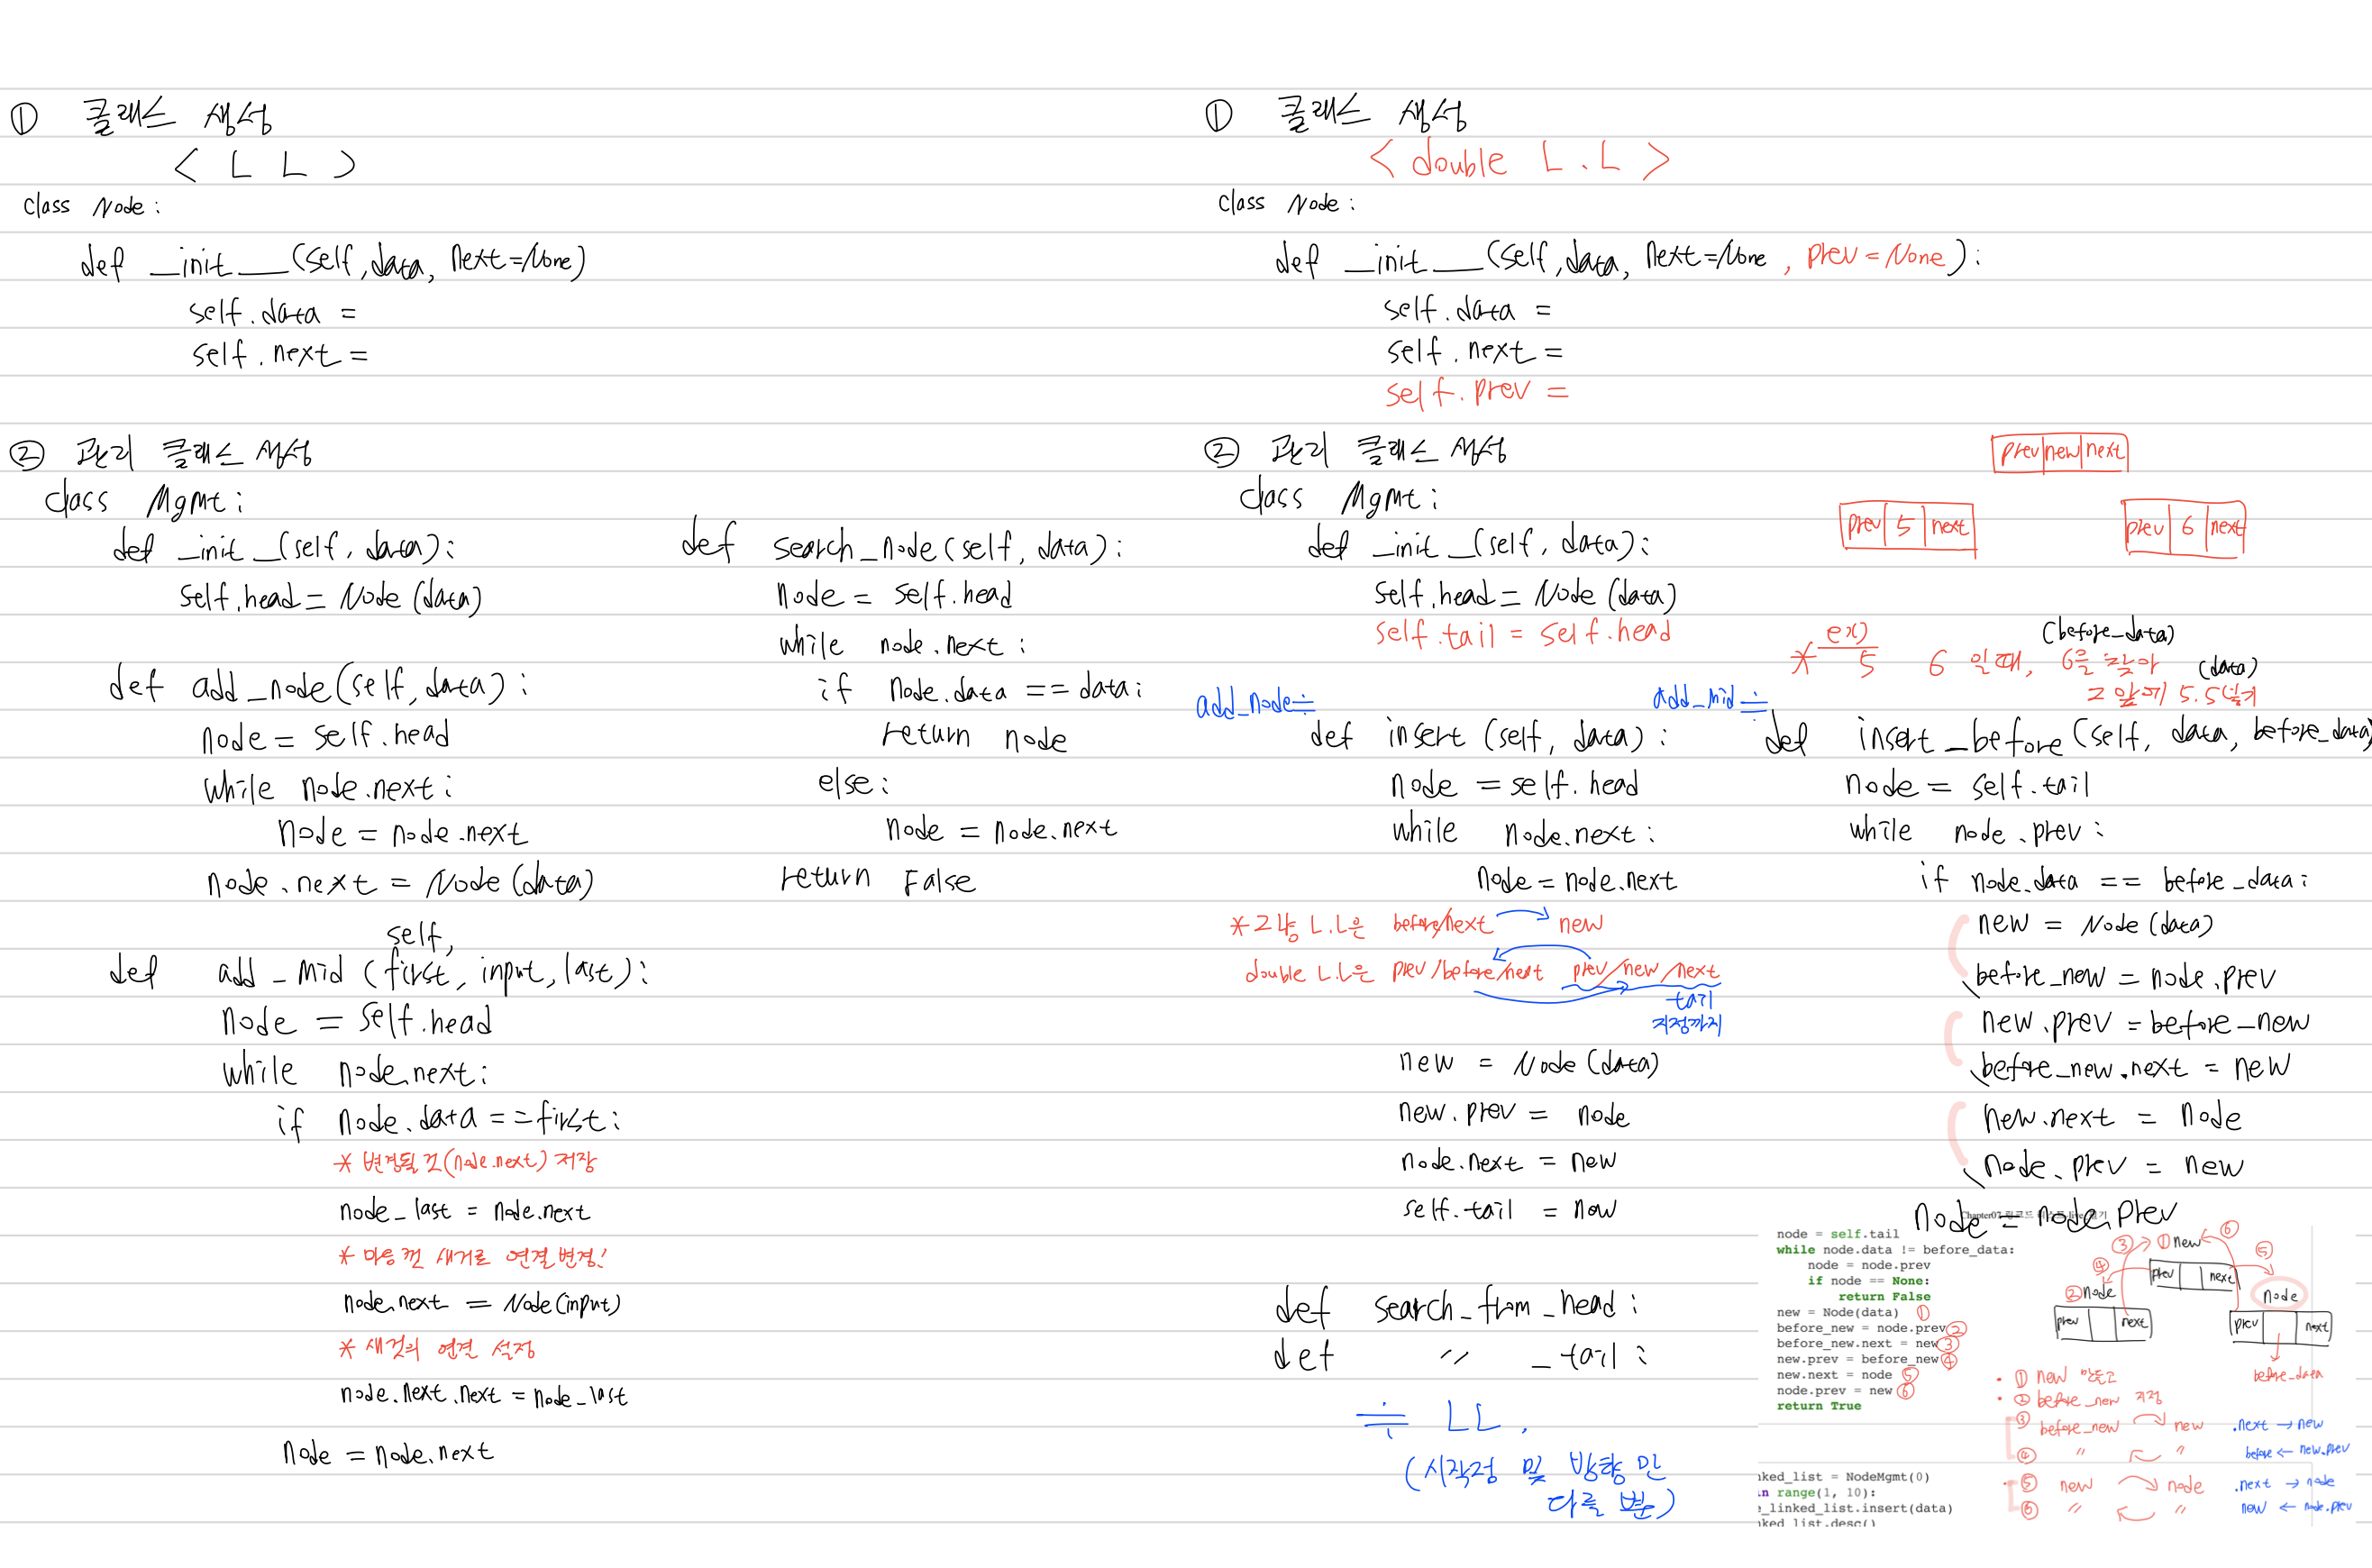 ① 클래스 생성
< L L >
class Node :
def __init__(self, data, next=None)
self.data =
self.next =
② 관리 클래스 생성
class Mgmt :
def _init_(self, data):
self.head = Node (data)
def add_node(self, data) :
node = self.head
while node.next :
node = node.next
node.next = Node (data)
self,
def add_mid (first, input, last):
node = self.head
while node.next :
if node.data == first :
* 변경될 것(node.next) 저장
node_last = node.next
* 마음껏 새거로 연결변경!
node.next = Node(input)
* 새것의 연결 설정
node.next.next = node_last
node = node.next
def search_node(self, data) :
node = self.head
while node.next :
if node.data == data :
return node
else :
node = node.next
return False
① 클래스 생성
< double L.L >
class Node :
def __init__(self, data, next=None, prev=None) :
self.data =
self.next =
self.prev =
② 관리 클래스 생성
class Mgmt :
def _init_(self, data):
self.head = Node (data)
self.tail = self.head
add_node≒
def insert (self, data) :
node = self.head
while node.next :
node = node.next
* 그냥 L.L은 before/next new
double L.L은 prev/before/next prev/new/next
tail
지정까지
new = Node (data)
new.prev = node
node.next = new
self.tail = new
def search_from_head :
def 〃 _tail :
≒ LL.
(시작점 및 방향만
다를 뿐)
prev new next
prev 5 next
prev 6 next
* ex) 5 6 일때, 6를 찾아
(before_data)
(data)
그 앞에 5.5넣기
add_mid≒
def insert_before (self, data, before_data)
node = self.tail
while node.prev :
if node.data == before_data :
new = Node (data)
before_new = node.prev
new.prev = before_new
before_new.next = new
new.next = node
node.prev = new
node = node.prev
node = self.tail
while node.data != before_data:
node = node.prev
if node == None:
return False
new = Node(data) ①
before_new = node.prev ②
before_new.next = new ③
new.prev = before_new ④
new.next = node ⑤
node.prev = new ⑥
return True
nked_list = NodeMgmt(0)
in range(1, 10):
e_linked_list.insert(data)
nked_list.desc()
③ ① new ⑥
④ ⑤
prev next
② node
node
prev next
prev next
before_data
• ① new 만들고
• ② before_new 지정
③ before_new new .next → new
④ 〃 〃 before ← new.prev
• ⑤ new node .next → node
⑥ 〃 〃 new ← node.prev